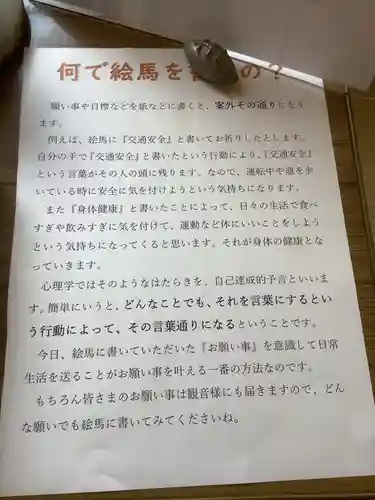 何で絵馬を書くの？
願い事や目標などを紙などに書くと、案外その通りになり
ます。
例えば、絵馬に『交通安全』と書いてお祈りしたとします。
自分の手で『交通安全』と書いたという行動により、『交通安全』
という言葉がその人の頭に残ります。なので、運転中や道を歩
いている時に安全に気を付けようという気持ちになります。
また『身体健康』と書いたことによって、日々の生活で食べ
すぎや飲みすぎに気を付けて、運動など体にいいことをしよう
という気持ちになってくると思います。それが身体の健康とな
っていきます。
心理学ではそのようなはたらきを、自己達成的予言といいま
す。簡単にいうと、どんなことでも、それを言葉にするとい
う行動によって、その言葉通りになるということです。
今日、絵馬に書いていただいた『お願い事』を意識して日常
生活を送ることがお願い事を叶える一番の方法なのです。
もちろん皆さまのお願い事は観音様にも届きますので、どん
な願いでも絵馬に書いてみてくださいね。